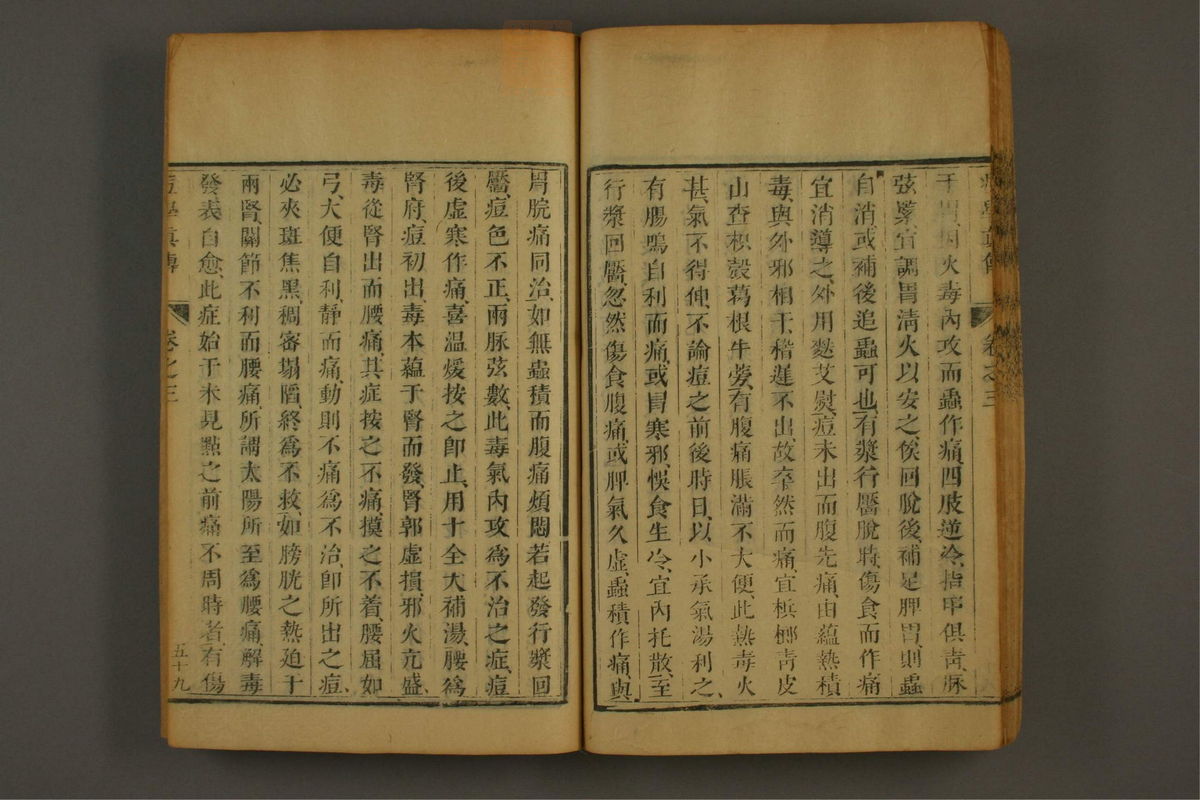 痘學真傳 卷之三
于胃因火毒內攻而蟲作痛四肢逆冷指甲俱青脉
弦緊宜調胃清火以安之候回脫後補足脾胃則蟲
自消或補後追蟲可也有漿行靨脫時傷食而作痛
宜消導之外用麩艾熨痘未出而腹先痛由蘊熱積
毒與外邪相干稽遲不出故卒然而痛宜檳榔青皮
山查枳殼葛根牛蒡有腹痛脹滿不大便此熱毒火
甚氣不得伸不論痘之前後時日以小承氣湯利之
有腸鳴自利而痛或冒寒邪悞食生冷宜內托散至
行漿回靨忽然傷食腹痛或脾氣久虛蟲積作痛與
胃脘痛同治如無蟲積而腹痛煩悶若起發行漿回
靨痘色不正兩脉弦數此毒氣內攻為不治之症痘
後虛寒作痛喜溫煖按之卽止用十全大補湯腰為
腎府痘初出毒本蘊于腎而發腎郭虛損邪火亢盛
毒從腎出而腰痛其症按之不痛摸之不着腰屈如
弓大便自利靜而痛動則不痛為不治卽所出之痘
必夾斑焦黑稠密塌陷終為不救如膀胱之熱廹于
兩腎關節不利而腰痛所謂太陽所至為腰痛解毒
發表自愈此症始于未見點之前痛不周時者有傷
痘學真傳 卷之三 五十九